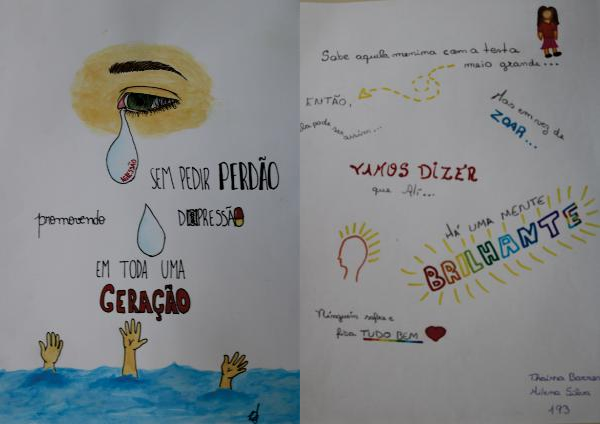 AGRESSÃO
SEM PEDIR PERDÃO
promovendo DEPRESSÃO
EM TODA UMA
GERAÇÃO
Sabe aquela menina com a testa
meio grande...
ENTÃO,
pode ser
assim...
Mas em vez de
ZOAR...
VAMOS DIZER
que Ali...
HÁ UMA MENTE
BRILHANTE
Ninguém sofre e
fica TUDO BEM
Thaina
Milena Silva
193